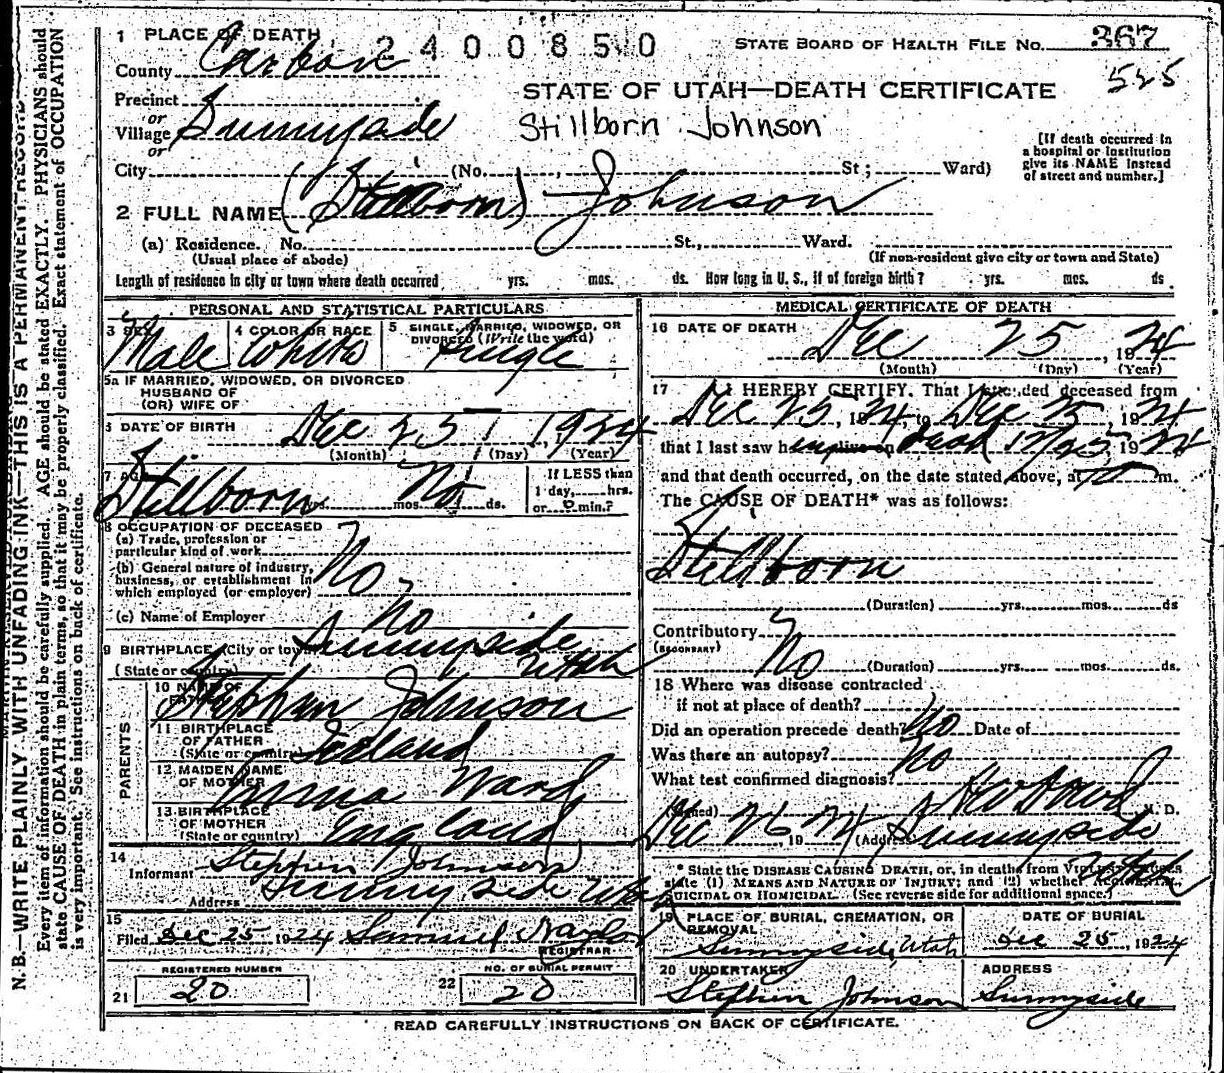 1 PLACE OF DEATH
2400850
STATE BOARD OF HEALTH FILE No. 367
County Carbon
525
STATE OF UTAH—DEATH CERTIFICATE
Precinct
or
Village Sunnyside
or
Stillborn Johnson
[If death occurred in
a hospital or institution
give its NAME instead
of street and number.]
City (No. St; Ward)
2 FULL NAME (Stillborn) Johnson
(a) Residence. No. St., Ward.
(Usual place of abode) (If non-resident give city or town and State)
Length of residence in city or town where death occurred yrs. mos. ds. How long in U. S., if of foreign birth? yrs. mos. ds
PERSONAL AND STATISTICAL PARTICULARS
3 SEX Male
4 COLOR OR RACE White
5 SINGLE, MARRIED, WIDOWED, OR
DIVORCED (Write the word)
Single
5a IF MARRIED, WIDOWED, OR DIVORCED
HUSBAND OF
(OR) WIFE OF
6 DATE OF BIRTH Dec 25, 1924
(Month) (Day) (Year)
7 AGE Stillborn yrs. No mos. ds.
If LESS than
1 day, hrs.
or 0 min.?
8 OCCUPATION OF DECEASED
(a) Trade, profession or
particular kind of work
(b) General nature of industry,
business, or establishment in
which employed (or employer) No
(c) Name of Employer No
9 BIRTHPLACE (City or town) Sunnyside
(State or country) Utah
PARENTS
10 NAME OF
FATHER Stephen Johnson
11 BIRTHPLACE
OF FATHER
(State or country)
12 MAIDEN NAME
OF MOTHER Emma Ward
13 BIRTHPLACE
OF MOTHER
(State or country) England
14
Informant Stephen Johnson
Address Sunnyside Utah
15
Filed Dec 25 1924 Samuel Naylor
REGISTRAR
REGISTERED NUMBER
21 20
NO. OF BURIAL PERMIT
22 20
MEDICAL CERTIFICATE OF DEATH
16 DATE OF DEATH Dec 25, 1924
(Month) (Day) (Year)
17 I HEREBY CERTIFY, That I attended deceased from
Dec 25, 1924, to Dec 25, 1924
that I last saw h alive on dead 12/25, 1924
and that death occurred, on the date stated above, at m.
The CAUSE OF DEATH* was as follows:
Stillborn
(Duration) yrs. mos. ds
Contributory No
(SECONDARY)
(Duration) yrs. mos. ds.
18 Where was disease contracted
if not at place of death?
Did an operation precede death? No Date of
Was there an autopsy? No
What test confirmed diagnosis?
(Signed) M. D.
Dec 26, 1924 (Address) Sunnyside
Utah
* State the DISEASE CAUSING DEATH, or, in deaths from
state (1) MEANS AND NATURE OF INJURY; and (2) whether
SUICIDAL OR HOMICIDAL. (See reverse side for additional space.)
19 PLACE OF BURIAL, CREMATION, OR
REMOVAL
Sunnyside, Utah
DATE OF BURIAL
Dec 25, 1924
20 UNDERTAKER
Stephen Johnson
ADDRESS
Sunnyside
READ CAREFULLY INSTRUCTIONS ON BACK OF CERTIFICATE.
N. B.—WRITE PLAINLY WITH UNFADING INK—THIS IS A PERMANENT RECORD
Every item of information should be carefully supplied. AGE should be stated EXACTLY. PHYSICIANS should
state CAUSE OF DEATH in plain terms, so that it may be properly classified. Exact statement of OCCUPATION
is very important. See instructions on back of certificate.